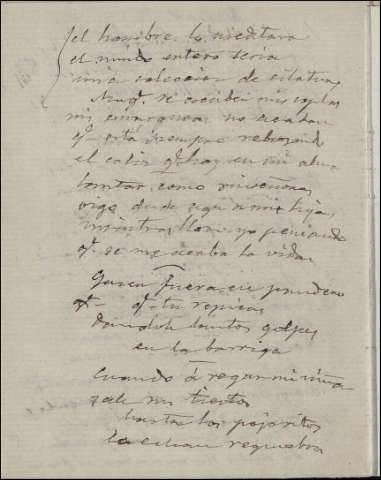 si el hombre lo meditara
el mundo entero seria
una coleccion de estatuas
Aunq. se acaben mis coplas
mi amargura no acaban
q. está siempre rebozando
el caliz q. hay en mi alma
cantar como ruiseñores
oigo desde aqui a mis hijas
mientras lloro yo pensando
q. se me acaba la vida
Quien fuera ese pandero
q. tu repicas
dandole tantos golpes
en la barriga
Cuando á regar mi niña
sale sus tiestos
hasta los pajaritos
le echan requiebros